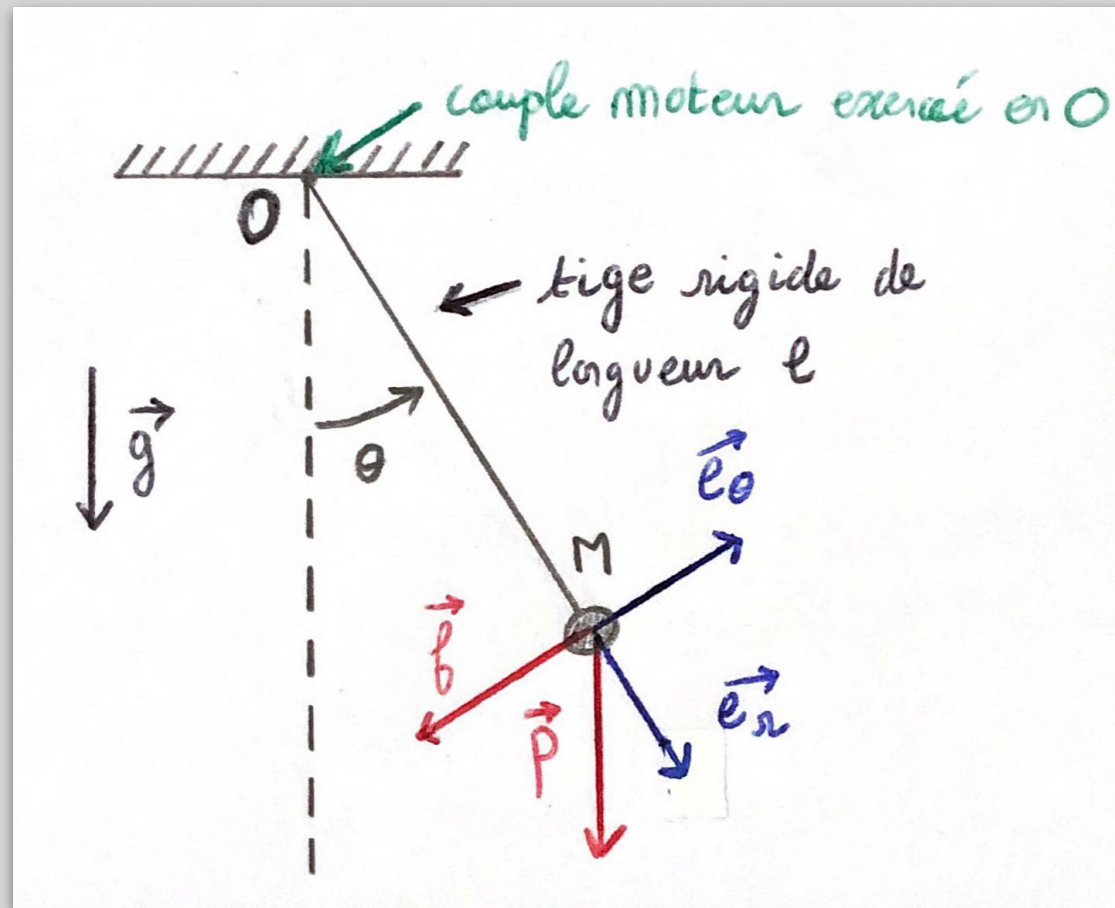 couple moteur exercé en O
O
tige rigide de
longueur l
g
θ
eθ
M
f
er
P